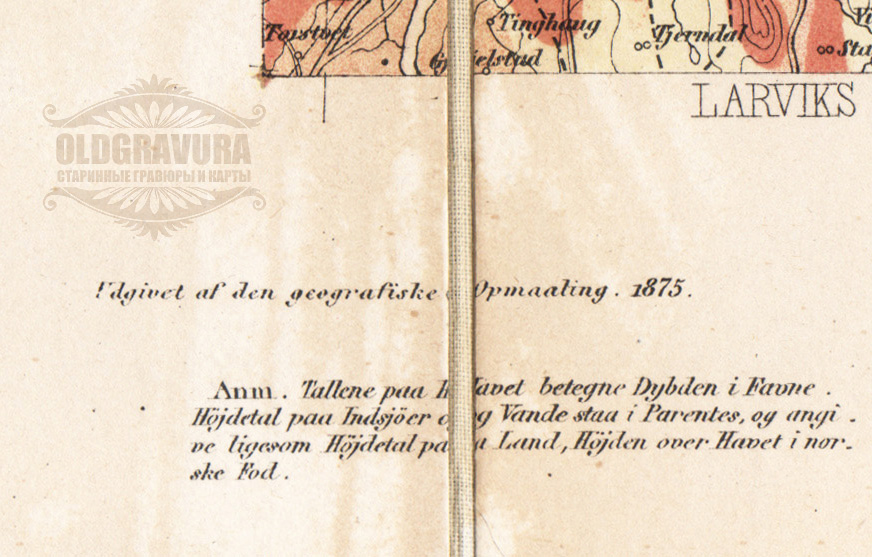 Torstvet
Tinghaug
Tjerndal
LARVIKS
OLDGRAVURA
СТАРИННЫЕ ГРАВЮРЫ И КАРТЫ
Udgivet af den geografiske Opmaaling. 1875.
Anm. Tallene paa Havet betegne Dybden i Favne.
Höjdetal paa Indsjöer og Vande staa i Parentes, og angi-
ve ligesom Höjdetal paa Land, Höjden over Havet i nor-
ske Fod.